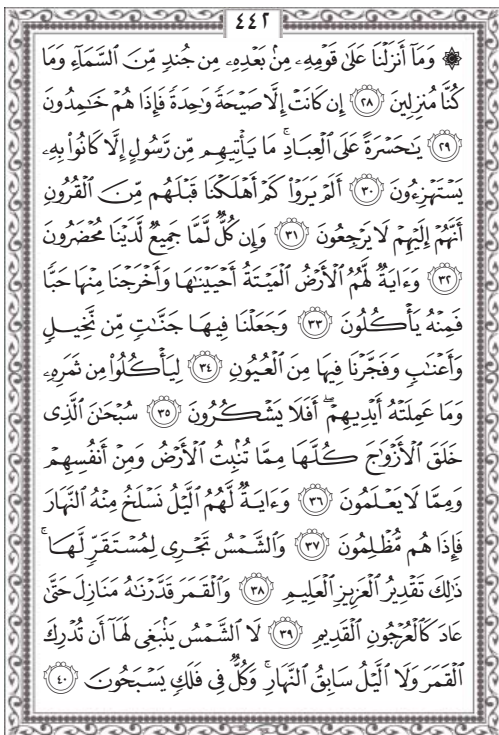 ٤٤٢
۞ وَمَآ أَنزَلْنَا عَلَىٰ قَوْمِهِۦ مِنۢ بَعْدِهِۦ مِن جُندٍ مِّنَ ٱلسَّمَآءِ وَمَا
كُنَّا مُنزِلِينَ ﴿٢٨﴾ إِن كَانَتْ إِلَّا صَيْحَةً وَٰحِدَةً فَإِذَا هُمْ خَٰمِدُونَ
﴿٢٩﴾ يَٰحَسْرَةً عَلَى ٱلْعِبَادِ ۚ مَا يَأْتِيهِم مِّن رَّسُولٍ إِلَّا كَانُوا۟ بِهِۦ
يَسْتَهْزِءُونَ ﴿٣٠﴾ أَلَمْ يَرَوْا۟ كَمْ أَهْلَكْنَا قَبْلَهُم مِّنَ ٱلْقُرُونِ
أَنَّهُمْ إِلَيْهِمْ لَا يَرْجِعُونَ ﴿٣١﴾ وَإِن كُلٌّ لَّمَّا جَمِيعٌ لَّدَيْنَا مُحْضَرُونَ
﴿٣٢﴾ وَءَايَةٌ لَّهُمُ ٱلْأَرْضُ ٱلْمَيْتَةُ أَحْيَيْنَٰهَا وَأَخْرَجْنَا مِنْهَا حَبًّا
فَمِنْهُ يَأْكُلُونَ ﴿٣٣﴾ وَجَعَلْنَا فِيهَا جَنَّٰتٍ مِّن نَّخِيلٍ
وَأَعْنَٰبٍ وَفَجَّرْنَا فِيهَا مِنَ ٱلْعُيُونِ ﴿٣٤﴾ لِيَأْكُلُوا۟ مِن ثَمَرِهِۦ
وَمَا عَمِلَتْهُ أَيْدِيهِمْ ۖ أَفَلَا يَشْكُرُونَ ﴿٣٥﴾ سُبْحَٰنَ ٱلَّذِى
خَلَقَ ٱلْأَزْوَٰجَ كُلَّهَا مِمَّا تُنۢبِتُ ٱلْأَرْضُ وَمِنْ أَنفُسِهِمْ
وَمِمَّا لَا يَعْلَمُونَ ﴿٣٦﴾ وَءَايَةٌ لَّهُمُ ٱلَّيْلُ نَسْلَخُ مِنْهُ ٱلنَّهَارَ
فَإِذَا هُم مُّظْلِمُونَ ﴿٣٧﴾ وَٱلشَّمْسُ تَجْرِى لِمُسْتَقَرٍّ لَّهَا ۚ
ذَٰلِكَ تَقْدِيرُ ٱلْعَزِيزِ ٱلْعَلِيمِ ﴿٣٨﴾ وَٱلْقَمَرَ قَدَّرْنَٰهُ مَنَازِلَ حَتَّىٰ
عَادَ كَٱلْعُرْجُونِ ٱلْقَدِيمِ ﴿٣٩﴾ لَا ٱلشَّمْسُ يَنۢبَغِى لَهَآ أَن تُدْرِكَ
ٱلْقَمَرَ وَلَا ٱلَّيْلُ سَابِقُ ٱلنَّهَارِ ۚ وَكُلٌّ فِى فَلَكٍ يَسْبَحُونَ ﴿٤٠﴾